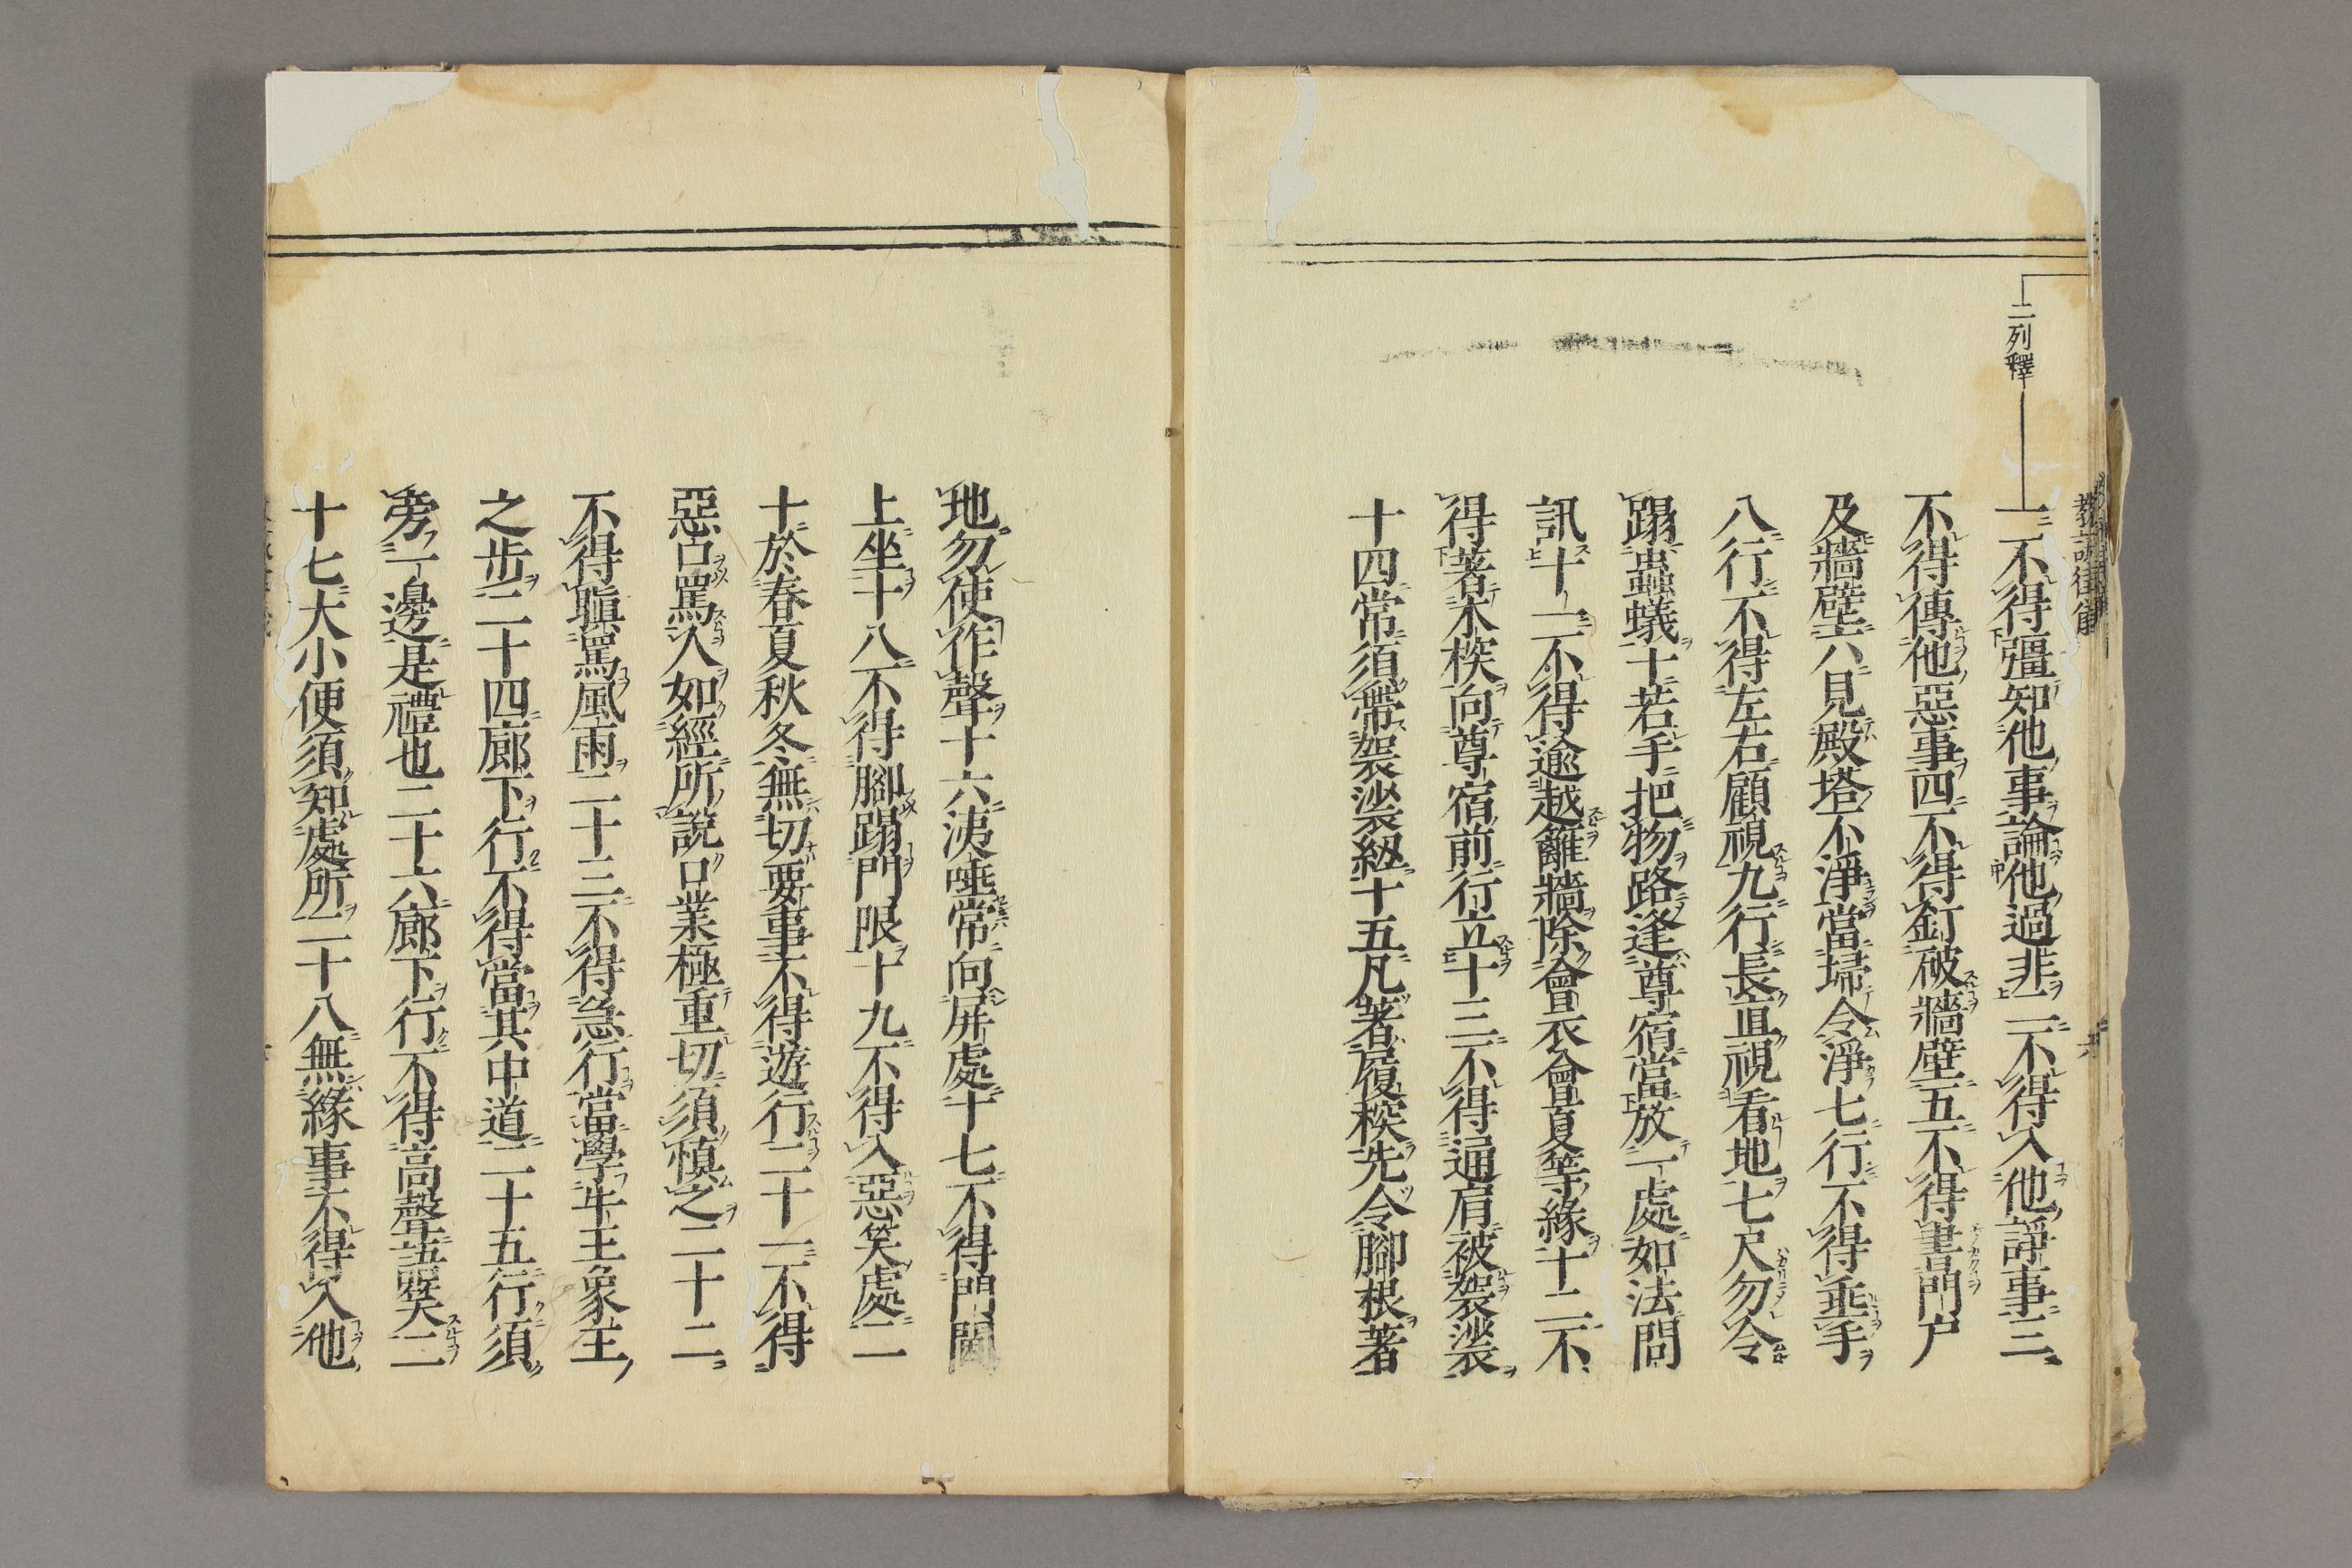 二列釋
一不得彊知他事論他過非二不得入他諍事三
不得傳他惡事四不得釘破牆壁五不得書門戸
及牆壁六見殿塔不淨當掃令淨七行不得垂手
八行不得左右顧視九行長直視看地七尺勿令
蹋蟲蟻十若手把物路逢尊宿當放一處如法問
訊十一不得逾越籬牆除會衣會夏等緣十二不
得著木屐向尊宿前行立十三不得通肩被袈裟
十四常須帶袈裟紐十五凡著履屐先令腳根著
地勿使作聲十六洟唾常向屏處十七不得門閫
上坐十八不得腳蹋門限十九不得入惡笑處二
十於春夏秋冬無切要事不得遊行二十一不得
惡口罵人如經所說口業極重切須慎之二十二
不得瞋罵風雨二十三不得急行當學牛王象王
之步二十四廊下行不得當其中道二十五行須
旁一邊是禮也二十六廊下行不得高聲語笑二
十七大小便須知處所二十八無緣事不得入他